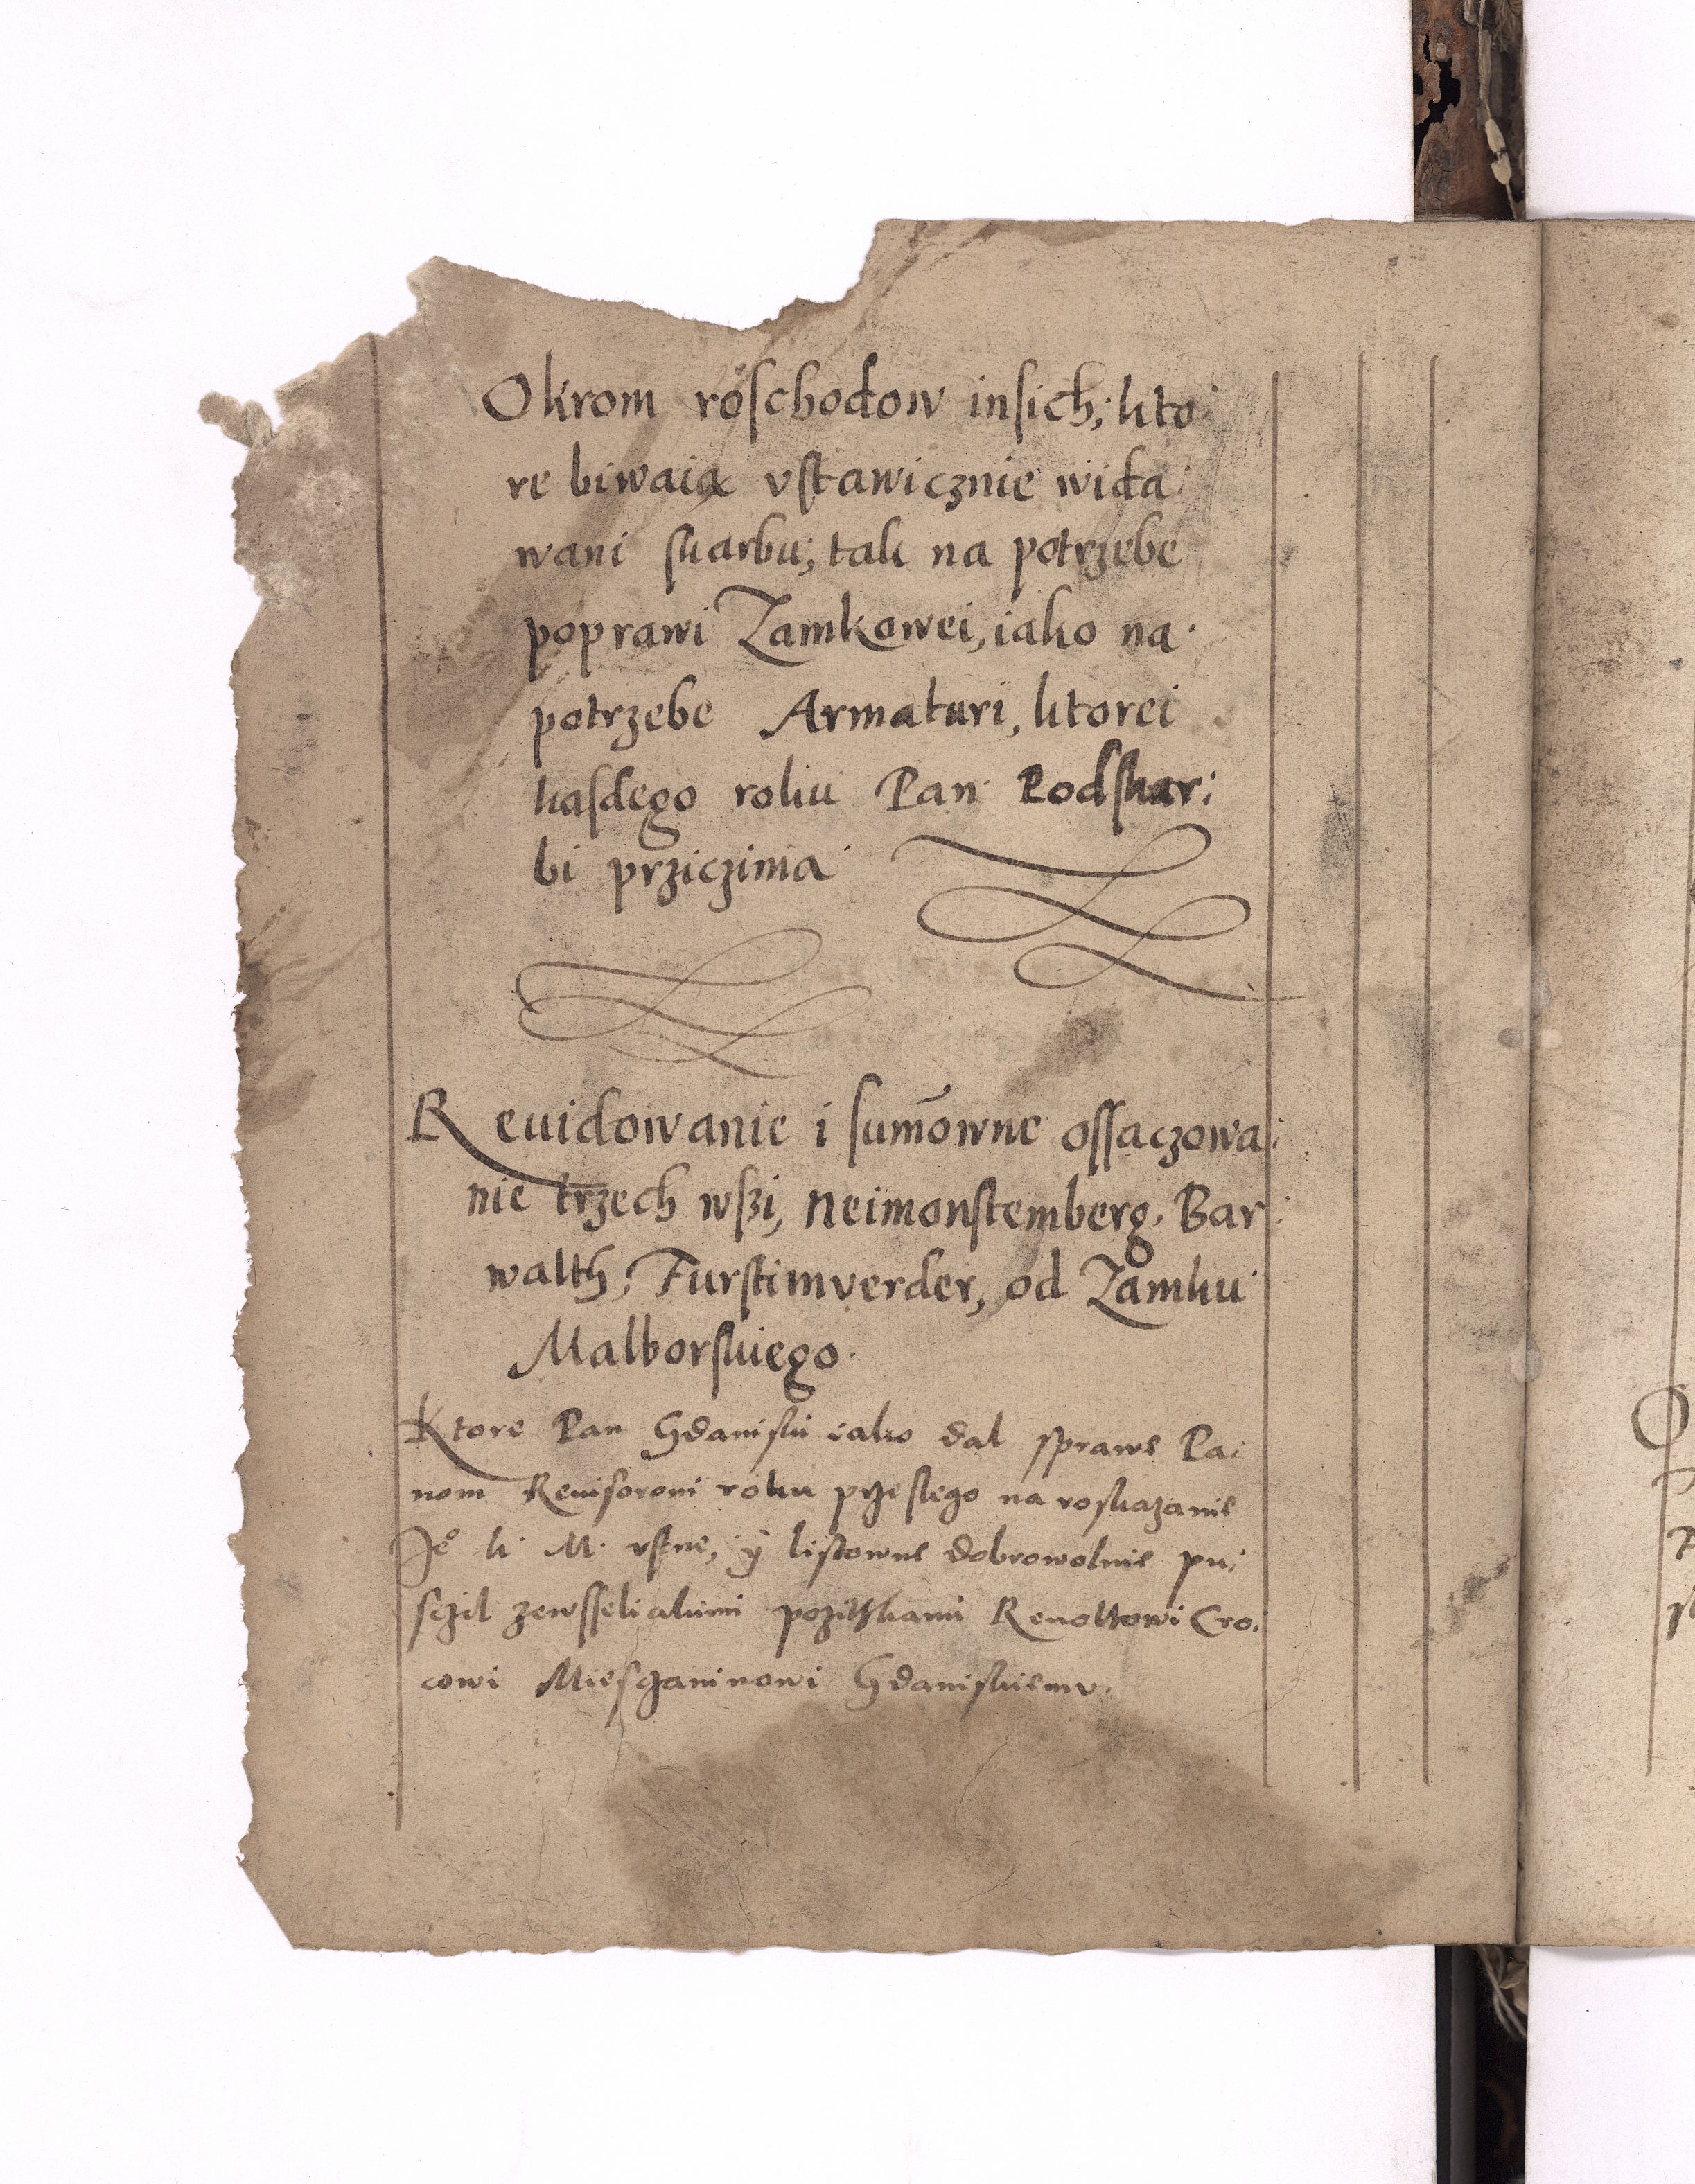 Okrom roschodow insich, kto:
re biwaią vstawicznie wida:
wani skarbu, tak na potrzebe
poprawi Zamkowei, iako na
potrzebe Armaturi, ktorei
kasdego roku Pan Podskar:
bi prziczinia
Reuidowanie i sumowne ossaczowa:
nie trzech wszi, Neimonstemberg, Bar:
walth, Furstimverder, od Zamku
Malborskiego.
Ktore Pan Gdaniski iako dal sprawe Pa:
nom Reuisorom roku przeslego na roskazanie
Je° K. M. vstne, ÿ listowne dobrowolnie pu:
sczil zewsselicakimi pozitkami Renoltowi Cro:
cowi Miesczaninowi Gdaniskiemv.